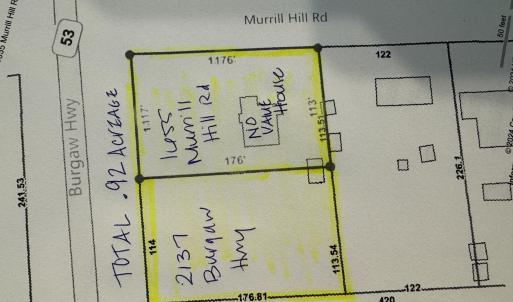 Murrill Hill Rd
53
Burgaw Hwy
241.53
TOTAL .92 ACREAGE
1176'
1655
Murrill
Hill Rd
NO
VALUE
House
1117'
113'
113.51
176'
122
226.1
50 feet
114
2137
Burgaw
Hwy
113.54
176.81
122
420